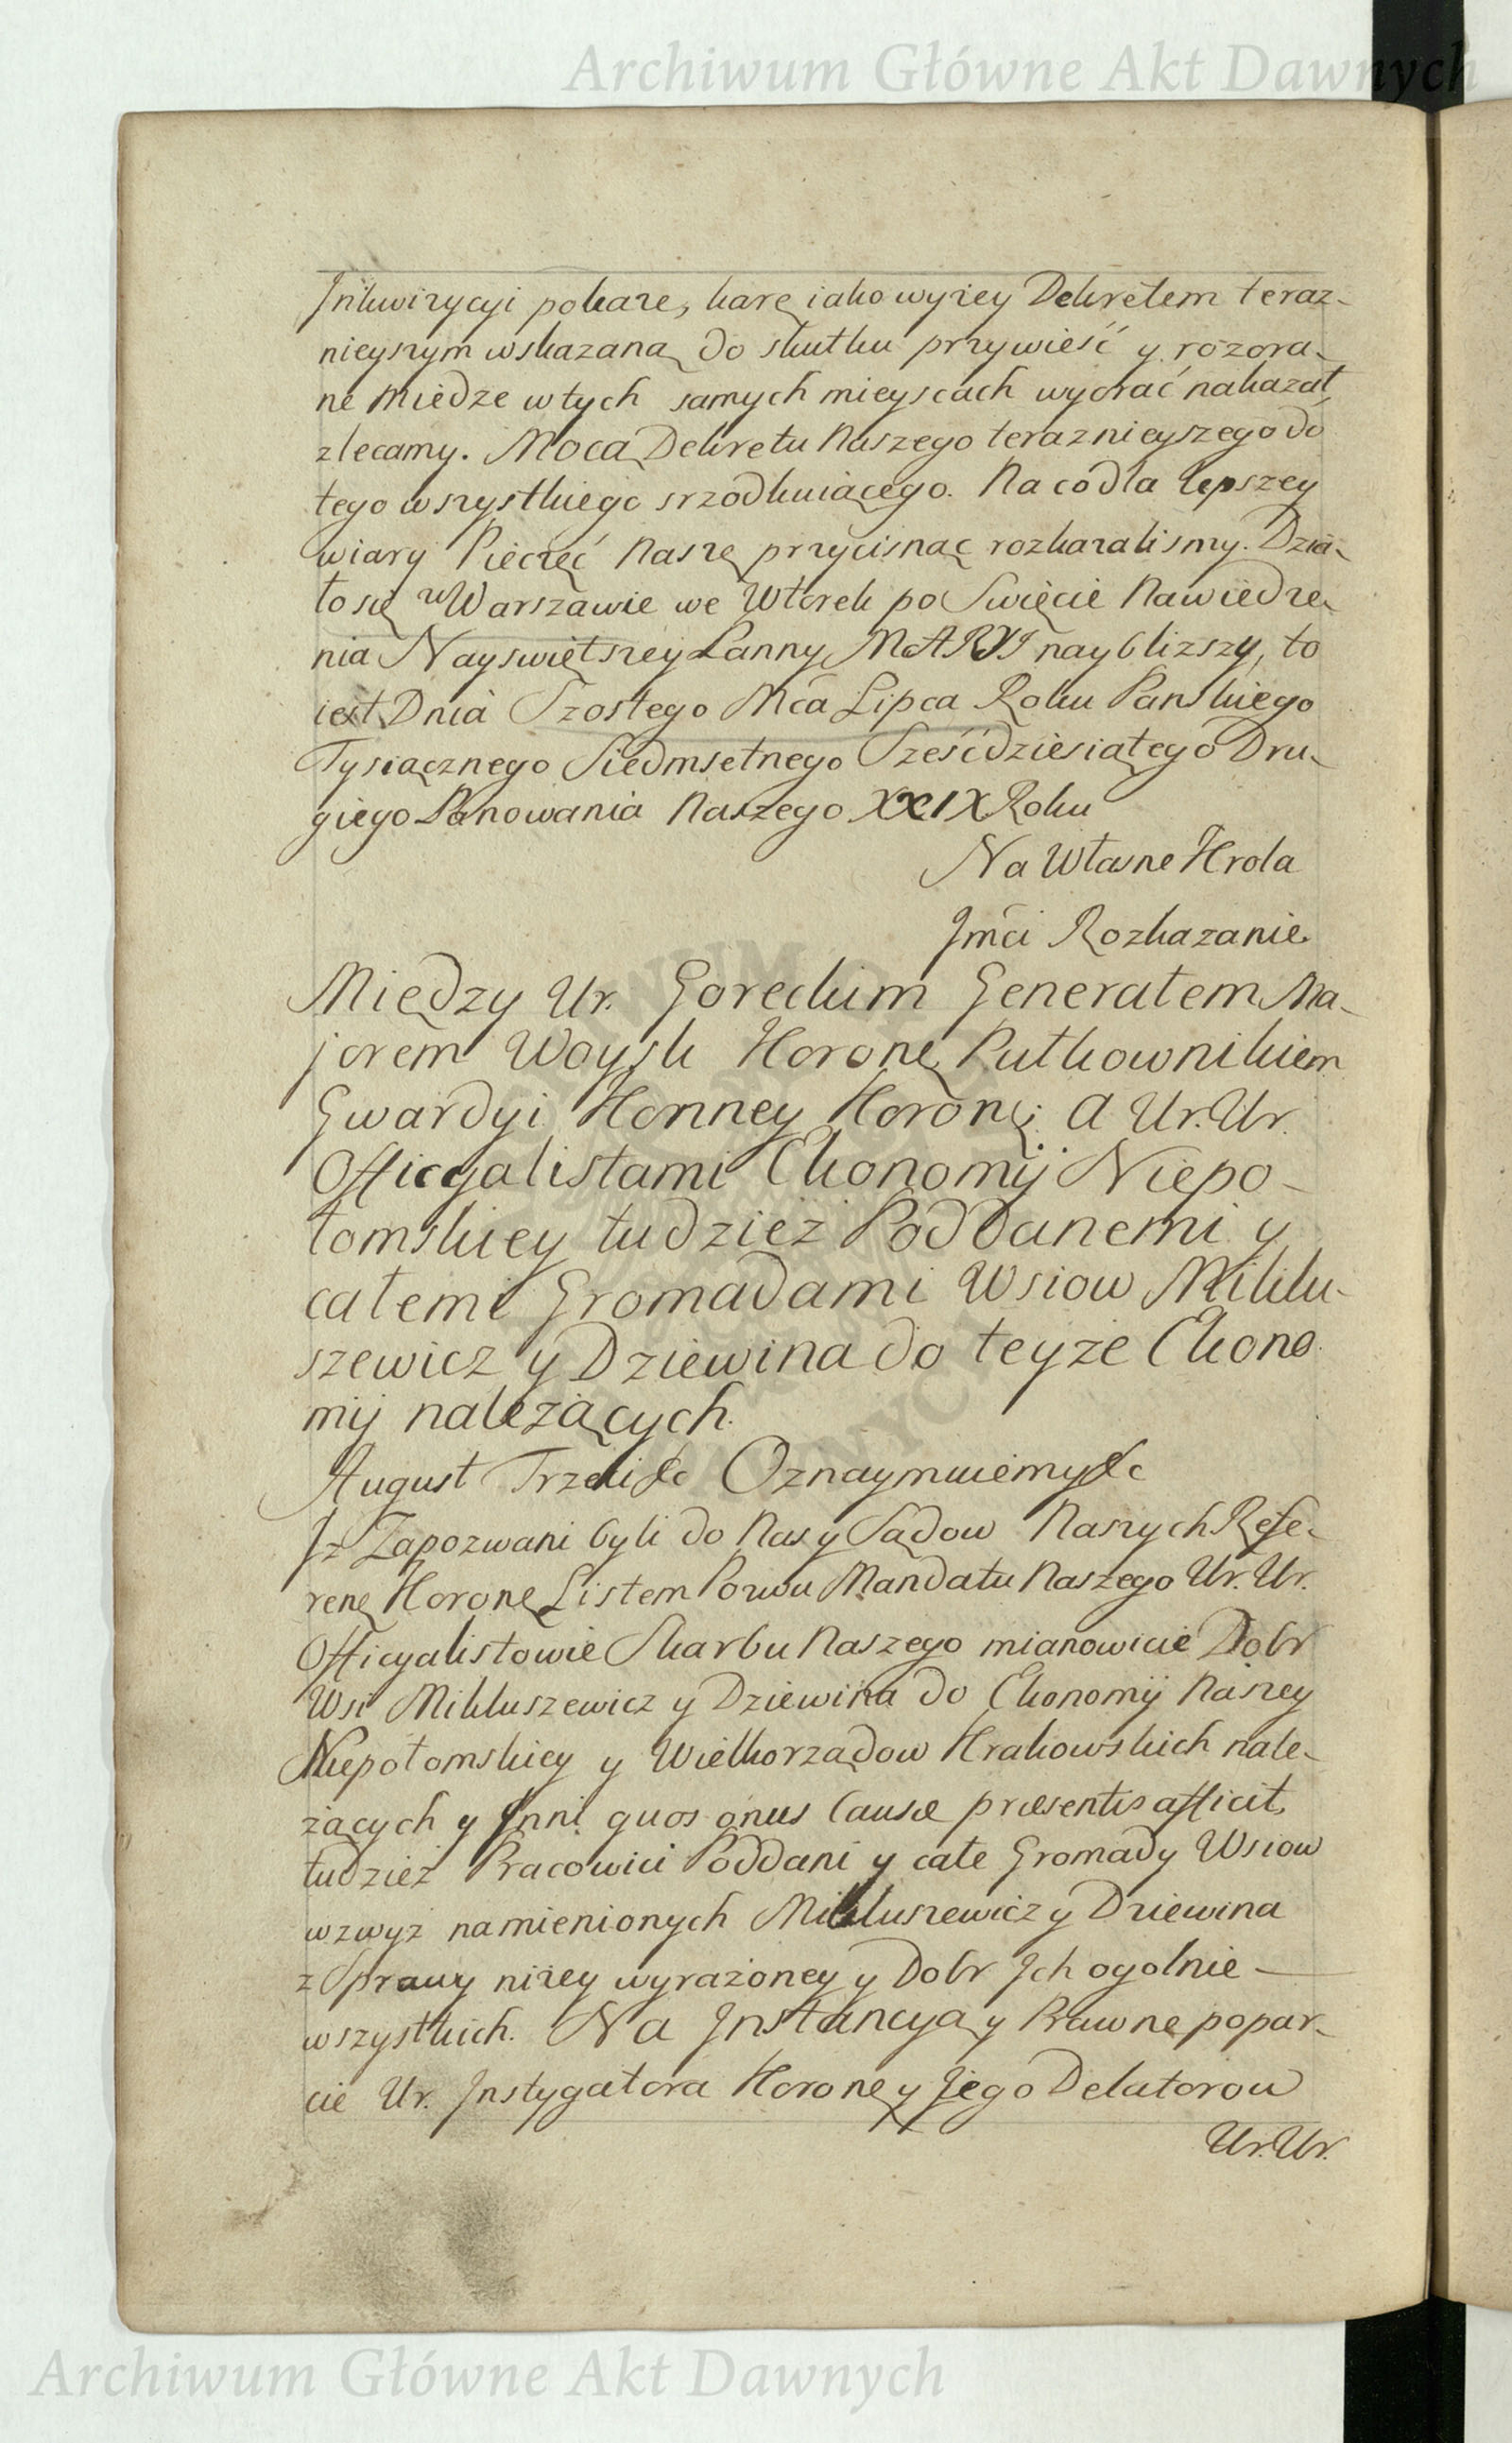 Archiwum Główne Akt Dawnych
Inkwizycyi pokaże, karę iako wyżey Dekretem teraz-
nieyszym wskazaną do skutku przywieść y rozora-
ne miedze w tych samych mieyscach wyorać nakazał,
zlecamy. Mocą Dekretu Naszego teraznieyszego do
tego wszystkiego srzodkuiącego. Na co dla lepszey
wiary Pieczęć Naszę przycisnąc rozkazalismy. Dzia-
ło się w Warszawie we Wtorek po Swięcie Nawiedze-
nia Nayswiętszey Panny MARYI naybliższy, to
iest Dnia Szostego Mca Lipca Roku Panskiego
Tysiącznego Siedmsetnego Sześćdziesiątego Dru-
giego Panowania Naszego XXIX Roku
Na Własne Krola
Jmci Rozkazanie
Między Ur. Goreckim Generałem Ma-
jorem Woysk Koronę Pułkownikiem
Gwardyi Konney Koronę: a Ur. Ur.
Officyalistami Ekonomij Niepo-
łomskiey tudziez Poddanemi y
całemi Gromadami Wsiow Mikłu-
szewicz y Dziewina do teyże Ekono
mij należących.
August Trzeci &c Oznaymuiemy &c
Iż Zapozwani byli do Nas y Sądow Naszych Refe-
renę Koronę Listem Pozwu Mandatu Naszego Ur. Ur.
Officyalistowie Skarbu Naszego mianowicie Dobr
Wsi Mikłuszewicz y Dziewina do Ekonomij Naszey
Niepołomskiey y Wielkorządow Krakowskich nale-
żących y Inni quos onus Causæ præsentis afficit,
tudzież Pracowici Poddani y całe Gromady Wsiow
wzwyż namienionych Mikłuszewicz y Dziewina
z Sprawy niżey wyrażoney y Dobr Ich ogolnie
wszystkich. Na Instancyą y Prawne popar-
cie Ur. Instygatora Koronę y Jego Delatorow
Ur. Ur.
Archiwum Główne Akt Dawnych